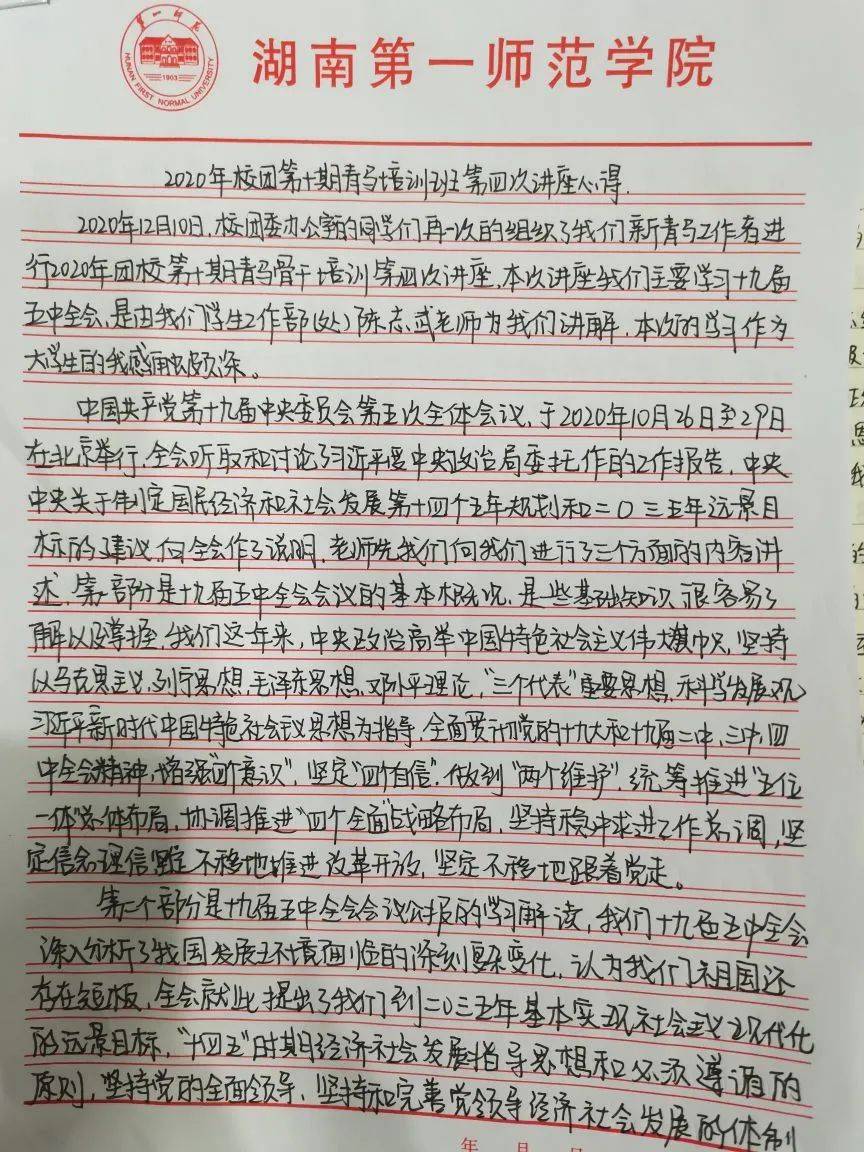 第一师范
HUNAN FIRST NORMAL UNIVERSITY
1903
湖南第一师范学院
2020年校团第十期青马培训班第四次讲座心得.
2020年12月10日,校团委办公室的同学们再一次的组织了我们新青马工作者进
行2020年团校第十期青马骨干培训第四次讲座,本次讲座我们主要学习十九届
五中全会,是由我们学生工作部(处)陈志武老师为我们讲解,本次的学习作为
大学生的我感触颇深。
中国共产党第十九届中央委员会第五次全体会议,于2020年10月26日至29日
在北京举行,全会听取和讨论了习近平受中央政治局委托作的工作报告,中央
中央关于制定国民经济和社会发展第十四个五年规划和二〇三五年远景目
标的建议,向全会作了说明,老师先我们向我们进行了三个方面的内容讲
述,第一部分是十九届五中全会会议的基本概况,是一些基础知识,很容易了
解以及掌握,我们这一年来,中央政治高举中国特色社会主义伟大旗帜,坚持
以马克思主义,列宁思想,毛泽东思想,邓小平理论,"三个代表"重要思想,科学发展观
习近平新时代中国特色社会主义思想为指导,全面贯彻党的十九大和十九届二中,三中,四
中全会精神,增强"四个意识",坚定"四个自信",做到"两个维护",统筹推进"五位
一体"总体布局,协调推进"四个全面"战略布局,坚持稳中求进工作总调,坚
定信念理信坚定不移地推进改革开放,坚定不移地跟着党走。
第二个部分是十九届五中全会会议公报的学习解读,我们十九届五中全会
深入分析了我国发展环境面临的深刻复杂变化,认为我们祖国还
存在短板,全会就此提出了我们到二〇三五年基本实现社会主义现代化
的远景目标,"十四五"时期经济社会发展指导思想和必须遵循的
原则,坚持党的全面领导,坚持和完善党领导经济社会发展的体制
年 月 日